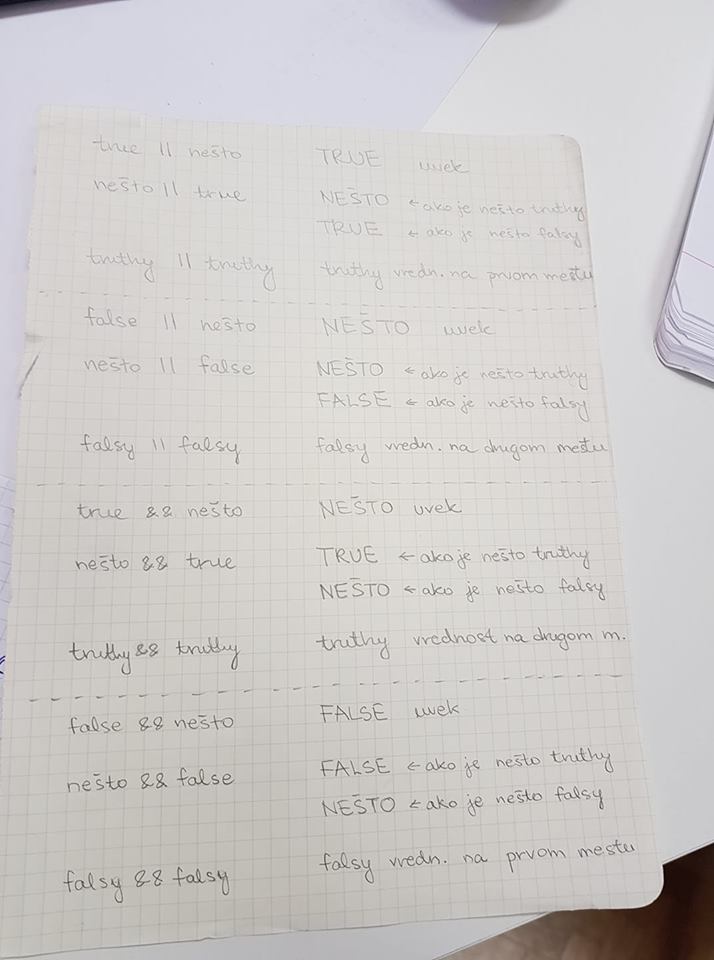 true || nešto TRUE uvek
nešto || true NEŠTO ← ako je nešto truthy
TRUE ← ako je nešto falsy
truthy || truthy truthy vredn. na prvom mestu
false || nešto NEŠTO uvek
nešto || false NEŠTO ← ako je nešto truthy
FALSE ← ako je nešto falsy
falsy || falsy falsy vredn. na drugom mestu
true && nešto NEŠTO uvek
nešto && true TRUE ← ako je nešto truthy
NEŠTO ← ako je nešto falsy
truthy && truthy truthy vrednost na drugom m.
false && nešto FALSE uvek
nešto && false FALSE ← ako je nešto truthy
NEŠTO ← ako je nešto falsy
falsy && falsy falsy vredn. na prvom mestu